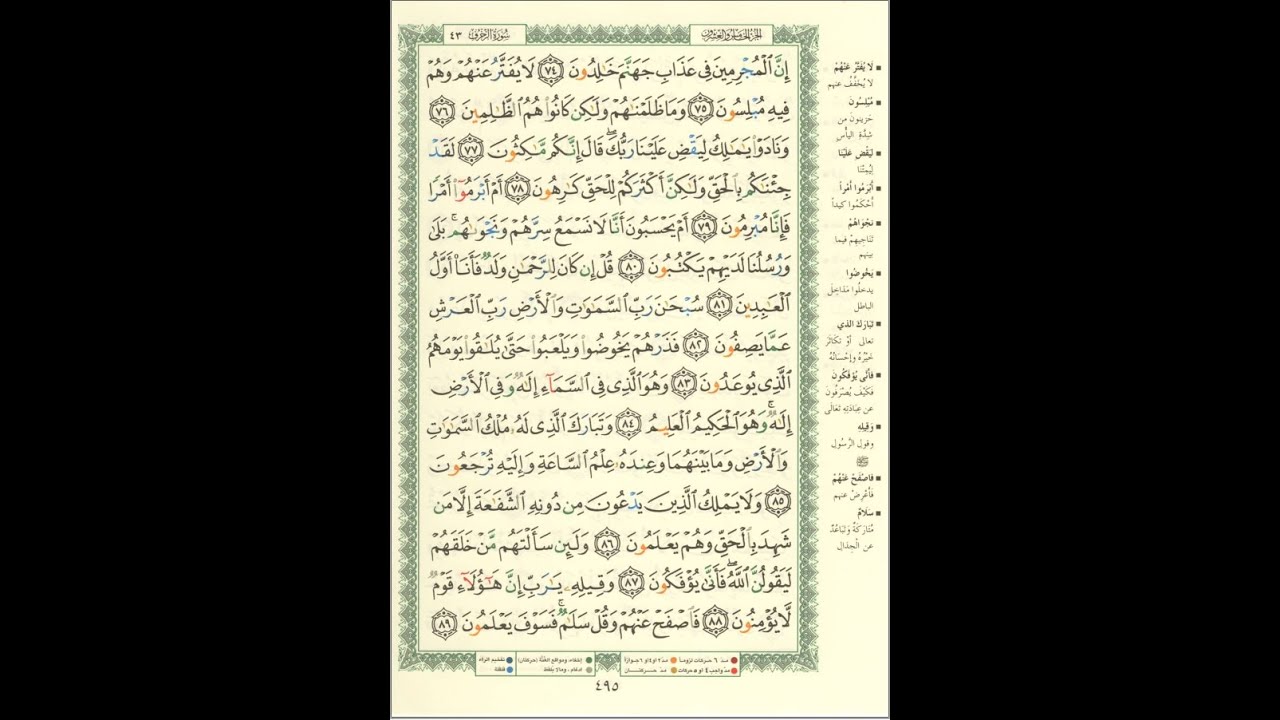 الجزء الخامس والعشرون
سورة الزخرف ٤٣
إِنَّ ٱلْمُجْرِمِينَ فِى عَذَابِ جَهَنَّمَ خَـٰلِدُونَ ٧٤ لَا يُفَتَّرُ عَنْهُمْ وَهُمْ
فِيهِ مُبْلِسُونَ ٧٥ وَمَا ظَلَمْنَـٰهُمْ وَلَـٰكِن كَانُوا۟ هُمُ ٱلظَّـٰلِمِينَ ٧٦
وَنَادَوْا۟ يَـٰمَـٰلِكُ لِيَقْضِ عَلَيْنَا رَبُّكَ ۖ قَالَ إِنَّكُم مَّـٰكِثُونَ ٧٧ لَقَدْ
جِئْنَـٰكُم بِٱلْحَقِّ وَلَـٰكِنَّ أَكْثَرَكُمْ لِلْحَقِّ كَـٰرِهُونَ ٧٨ أَمْ أَبْرَمُوٓا۟ أَمْرًا
فَإِنَّا مُبْرِمُونَ ٧٩ أَمْ يَحْسَبُونَ أَنَّا لَا نَسْمَعُ سِرَّهُمْ وَنَجْوَىٰهُم ۚ بَلَىٰ
وَرُسُلُنَا لَدَيْهِمْ يَكْتُبُونَ ٨٠ قُلْ إِن كَانَ لِلرَّحْمَـٰنِ وَلَدٌ فَأَنَا۠ أَوَّلُ
ٱلْعَـٰبِدِينَ ٨١ سُبْحَـٰنَ رَبِّ ٱلسَّمَـٰوَٰتِ وَٱلْأَرْضِ رَبِّ ٱلْعَرْشِ
عَمَّا يَصِفُونَ ٨٢ فَذَرْهُمْ يَخُوضُوا۟ وَيَلْعَبُوا۟ حَتَّىٰ يُلَـٰقُوا۟ يَوْمَهُمُ
ٱلَّذِى يُوعَدُونَ ٨٣ وَهُوَ ٱلَّذِى فِى ٱلسَّمَآءِ إِلَـٰهٌ وَفِى ٱلْأَرْضِ
إِلَـٰهٌ ۚ وَهُوَ ٱلْحَكِيمُ ٱلْعَلِيمُ ٨٤ وَتَبَارَكَ ٱلَّذِى لَهُۥ مُلْكُ ٱلسَّمَـٰوَٰتِ
وَٱلْأَرْضِ وَمَا بَيْنَهُمَا وَعِندَهُۥ عِلْمُ ٱلسَّاعَةِ وَإِلَيْهِ تُرْجَعُونَ
٨٥ وَلَا يَمْلِكُ ٱلَّذِينَ يَدْعُونَ مِن دُونِهِ ٱلشَّفَـٰعَةَ إِلَّا مَن
شَهِدَ بِٱلْحَقِّ وَهُمْ يَعْلَمُونَ ٨٦ وَلَئِن سَأَلْتَهُم مَّنْ خَلَقَهُمْ
لَيَقُولُنَّ ٱللَّهُ ۖ فَأَنَّىٰ يُؤْفَكُونَ ٨٧ وَقِيلِهِۦ يَـٰرَبِّ إِنَّ هَـٰٓؤُلَآءِ قَوْمٌ
لَّا يُؤْمِنُونَ ٨٨ فَٱصْفَحْ عَنْهُمْ وَقُلْ سَلَـٰمٌ ۚ فَسَوْفَ يَعْلَمُونَ ٨٩
لَا يُفَتَّرُ عَنْهُمْ
لا يُخَفَّفُ عنهم
مُبْلِسُونَ
حَزِينون من
شِدَّةِ اليأسِ
لِيَقْضِ عَلَيْنَا
لِيُمِتْنَا
أَبْرَمُوا أَمْراً
أَحْكَمُوا كيداً
نَجْوَاهُمْ
تَنَاجِيهِمْ فيما
بينهم
يَخُوضُوا
يدخلُوا مَدَاخِلَ
الباطل
تَبَارَكَ الذي
تعالى أوْ تكاثَرَ
خَيْرُهُ وإحْسَانُهُ
فَأَنَّى يُؤْفَكُونَ
فَكَيْفَ يُصْرَفُونَ
عن عِبَادَتِهِ تَعَالَى
وَقِيلِهِ
وقول الرَّسُولِ
ﷺ
فَاصْفَحْ عَنْهُمْ
فَأَعْرِضْ عنهم
سَلَامٌ
مُتَارَكَةٌ وَتَبَاعُدٌ
عن الْجِدَالِ
مدّ ٦ حركات لزوماً مدّ ٢ او ٤ او ٦ جوازاً
مدّ واجب ٤ او ٥ حركات مدّ حركتان
إخفاء، ومواقع الغُنَّة (حركتان) تفخيم الراء
ادغام، وما لا يُلفَظ قلقلة
٤٩٥